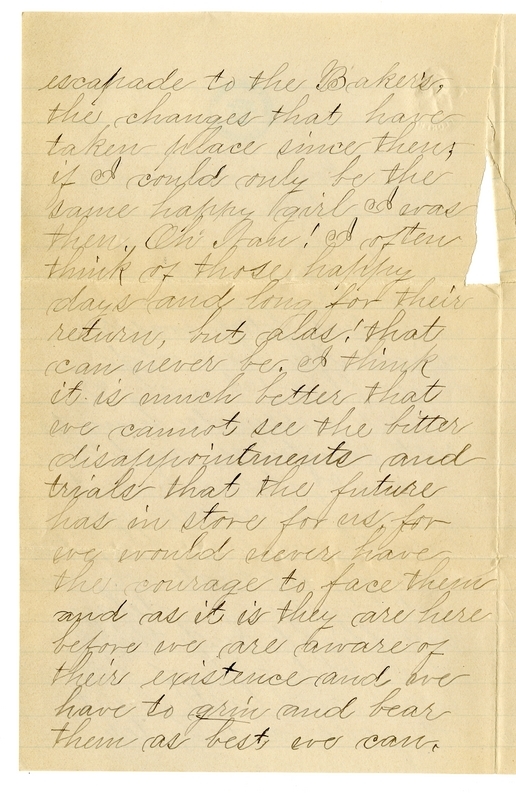 escapade to the Baker's,
the changes that have
taken place since then;
if I could only be the
same happy girl I was
then. Oh! I often
think of those happy
days and long for their
return, but alas! that
can never be. I think
it is much better that
we cannot see the bitter
disappointments and
trials that the future
has in store for us, for
we would never have
the courage to face them
and as it is they are here
before we are aware of
their existence and we
have to grin and bear
them as best we can.